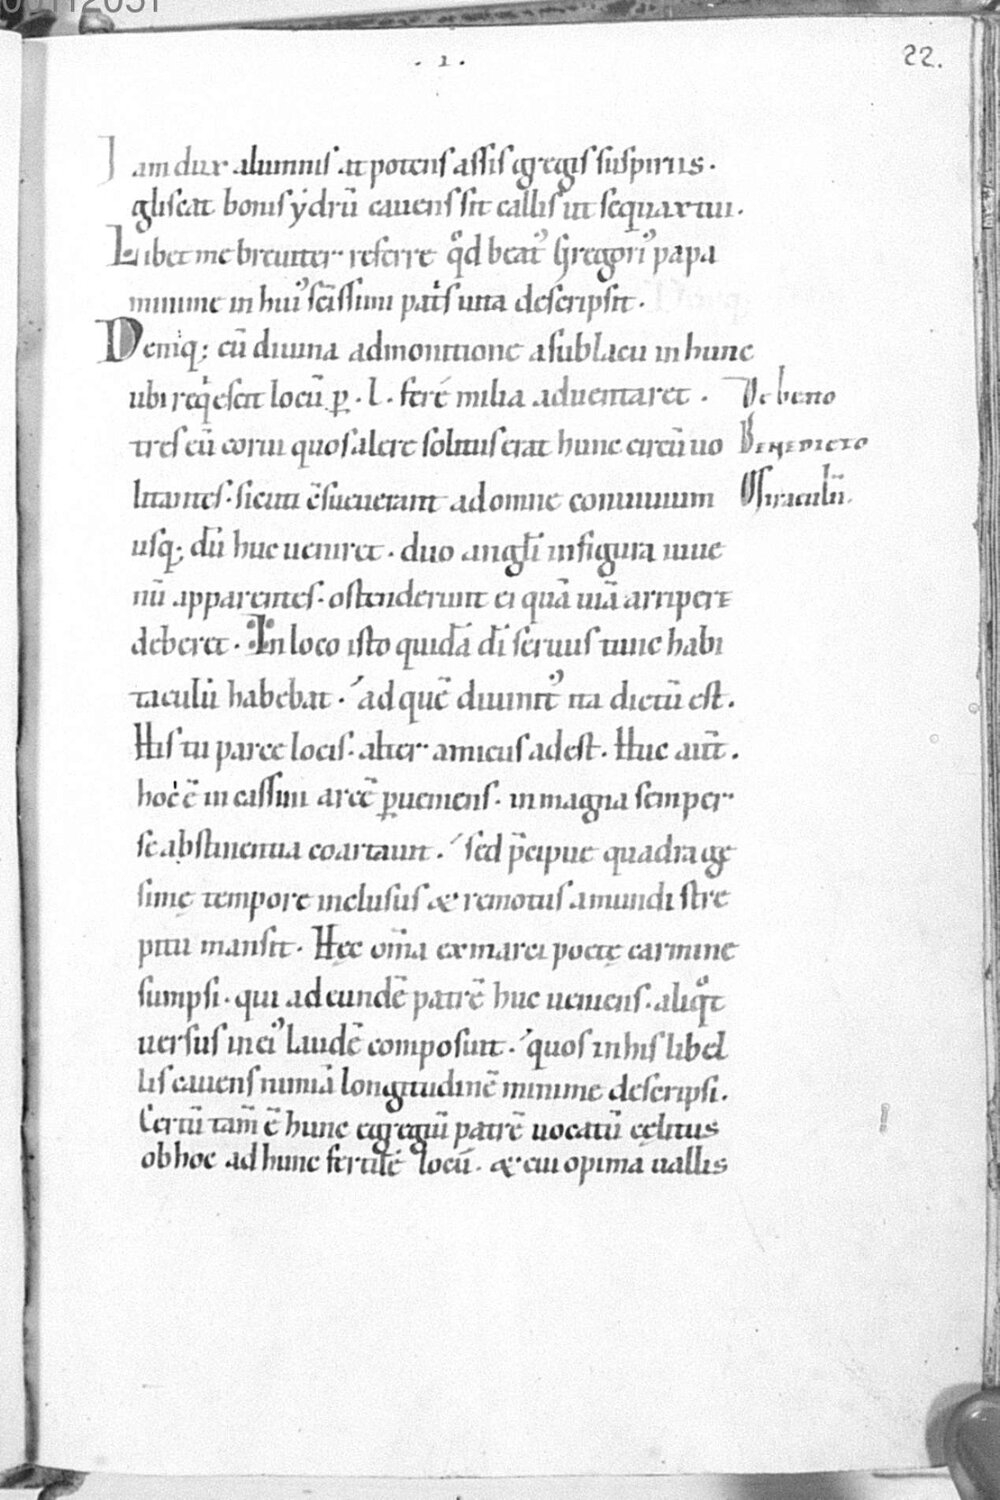 . 1 .
22.
Iam dux alumnis at potens assis gregis suspiriis.
gliscat bonis ydrū cauens sit callis ut sequax tui.
Libet me breuiter referre qͦd beatꝰ Gregoriꝰ papa
minime in huiꝰ sc̄issimi pat̄s uita descripsit.
Deniq; cū diuina admonitione a sublacu in hunc
ubi reqͥescit locū ꝑ .l. fere milia aduentaret .
De beato
tres eū corui quos alere solitus erat hunc circū uo
BENEDICTO
litantes . sicuti c̄sueuerant ad omne conuiuium
Miraculū.
usq; dū huc ueniret . duo angl̄i in figura iuue
nū apparentes . ostenderunt ei quā uiā arripere
deberet . In loco isto quidā dī seruus tunc habi
taculū habebat . ad quē diuinitꝰ ita dictū est .
His tu parce locis . alter amicus adest . Huc aūt .
hoc ē in cassini arcē ꝑueniens . in magna semper
se abstinentia coartauit . sed p̄cipue quadrage
simę tempore inclusus & remotus a mundi stre
pitu mansit . Hęc om̄a ex marci poetę carmine
sumpsi . qui ad eundē patrē huc ueniens . aliqͦt
uersus in eiꝰ laudē composuit . quos in his libel
lis cauens nimiā longitudinē minime descripsi .
Certū tam̄ ē hunc egregiū patrē uocatū cęlitus
ob hoc ad hunc fertilē locū . & cui opima uallis